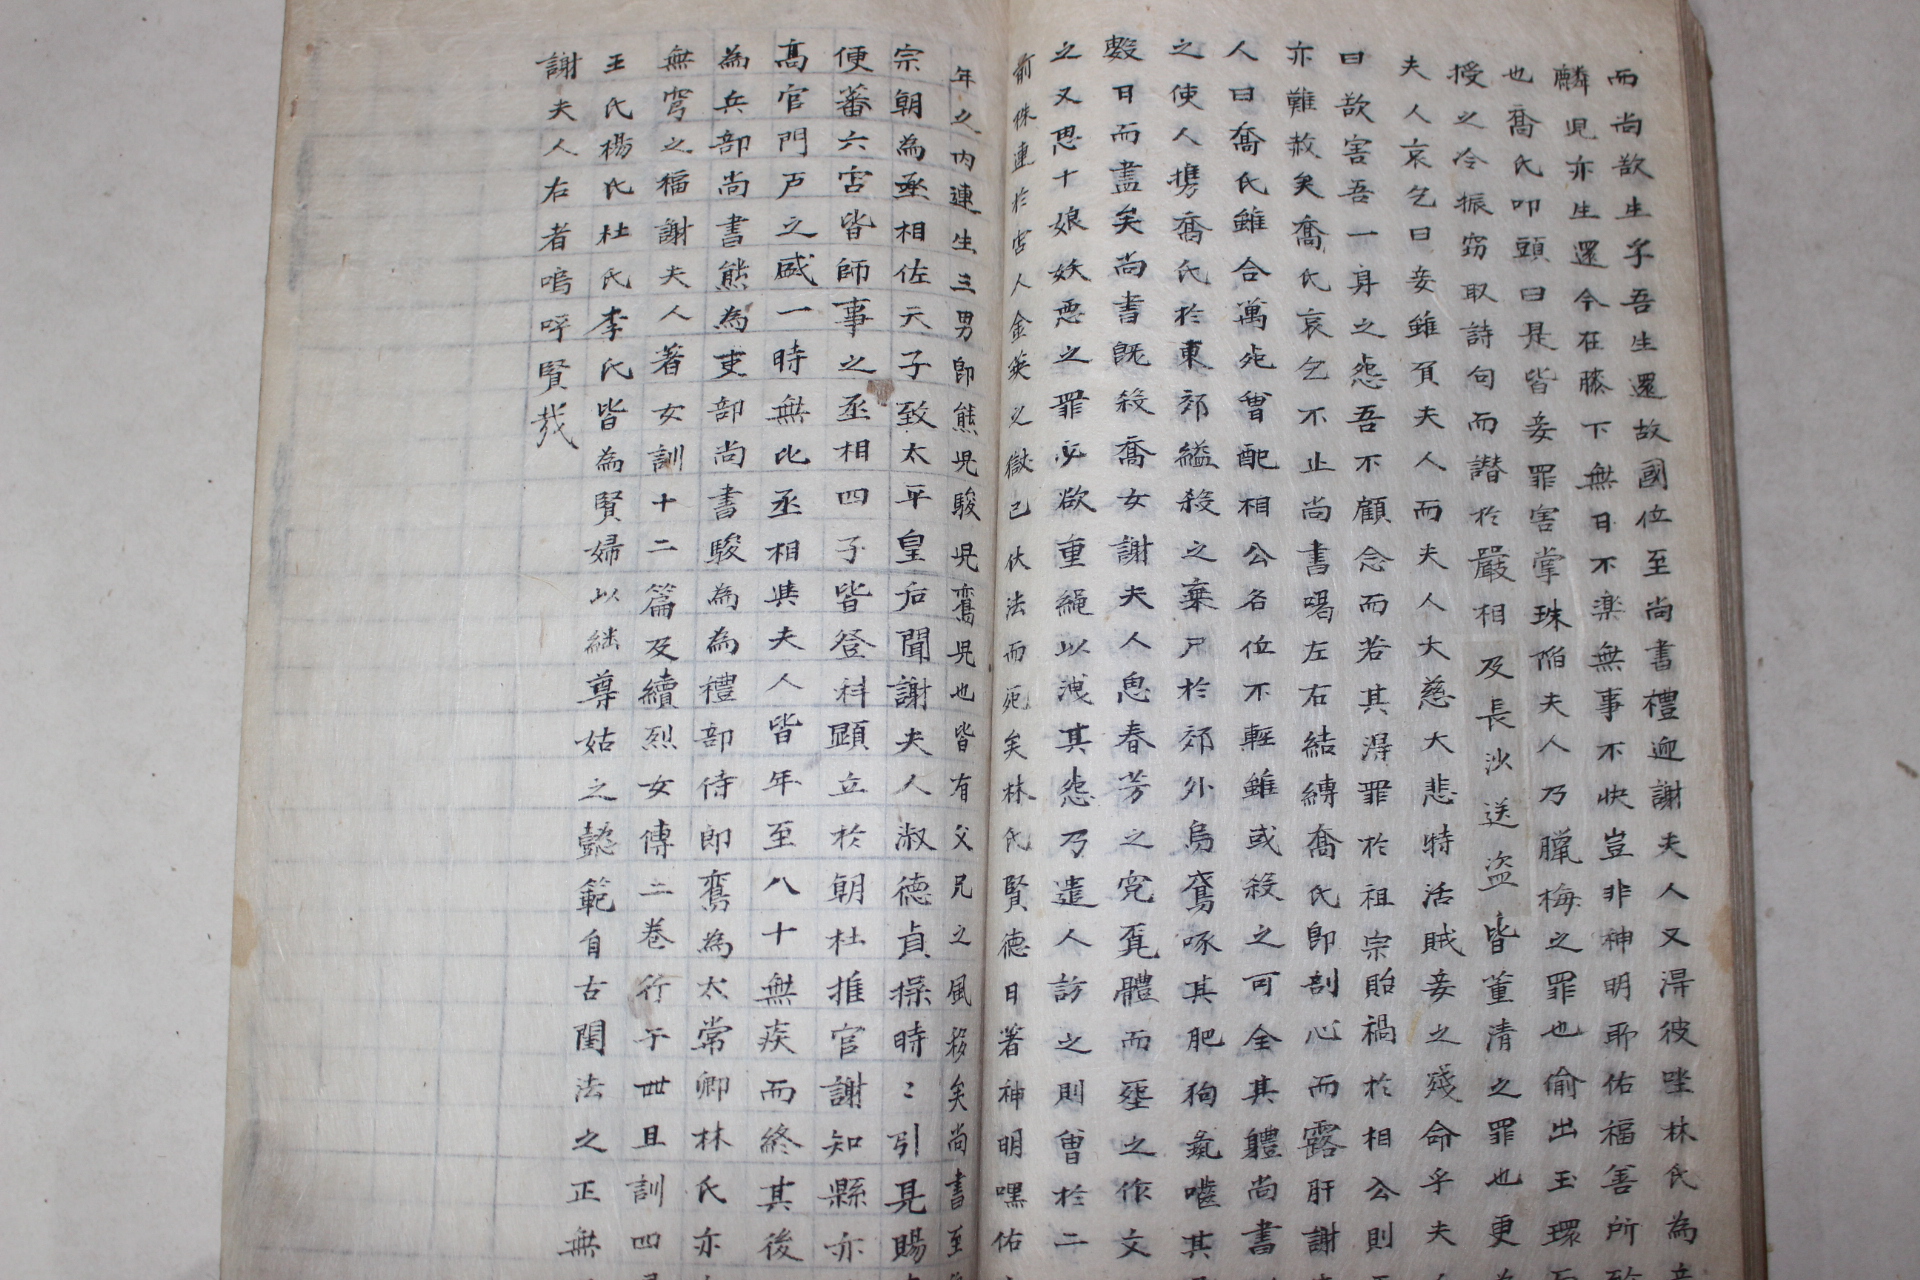 而尚欲生乎吾生還故國位至尚書禮迎謝夫人又得彼唑林氏為
麟児亦生還今在膝下無日不楽無事不快豈非神明所佑福善所
也喬氏叩頭曰是皆妾罪害掌珠陥夫人乃臘梅之罪也偷出玉環
授之冷振窃取詩句而譖於嚴相及長沙送盗皆董清之罪也更
夫人哀乞曰妾雖負夫人而夫人大慈大悲特活賊妾之殘命乎夫
曰欲害吾一身之怨吾不顧念而若其得罪於祖宗貽禍於相公則
亦難赦矣喬氏哀乞不止尚書喝左右結縛喬氏即剖心而露肝謝
人曰喬氏雖合萬死曾配相公名位不輕雖或殺之可全其軆尚書
之使人携喬氏於東郊縊殺之棄尸於郊外烏鳶啄其肥狗彘噛其
數日而盡矣尚書既殺喬女謝夫人思春芳之寃霓體而葬之作文
之又思十娘妖悪之罪必欲重繩以洩其怨乃遣人訪之則曾於二
前株連於宮人金英之獄已伏法而死矣林氏賢徳日著神明嘿佑
年之内連生三男即熊児駿児鸞児也皆有父兄之風移矣尚書至
宗朝為丞相佐天子致太平皇后聞謝夫人淑徳貞操時〻引見賜
便蕃六宮皆師事之丞相四子皆登科顕立於朝杜推官謝知縣亦
高官門戸之盛一時無比丞相與夫人皆年至八十無疾而終其後
為兵部尚書熊為吏部尚書駿為禮部侍郎鸞為太常卿林氏亦
無窮之福謝夫人著女訓十二篇及續烈女傳二卷行于丗且訓四
王氏楊氏杜氏李氏皆為賢婦以継尊姑之懿範自古閨法之正無
謝夫人右者嗚呼賢哉